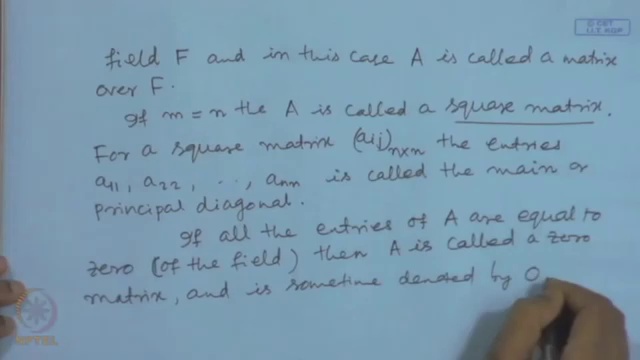 © CET
I.I.T. KGP
field F and in this case A is called a matrix
over F.
If m = n the A is called a square matrix.
For a square matrix (aij)n×n the entries
a11, a22, .., ann is called the main or
principal diagonal.
If all the entries of A are equal to
zero (of the field) then A is called a zero
matrix, and is sometime denoted by O
NPTEL